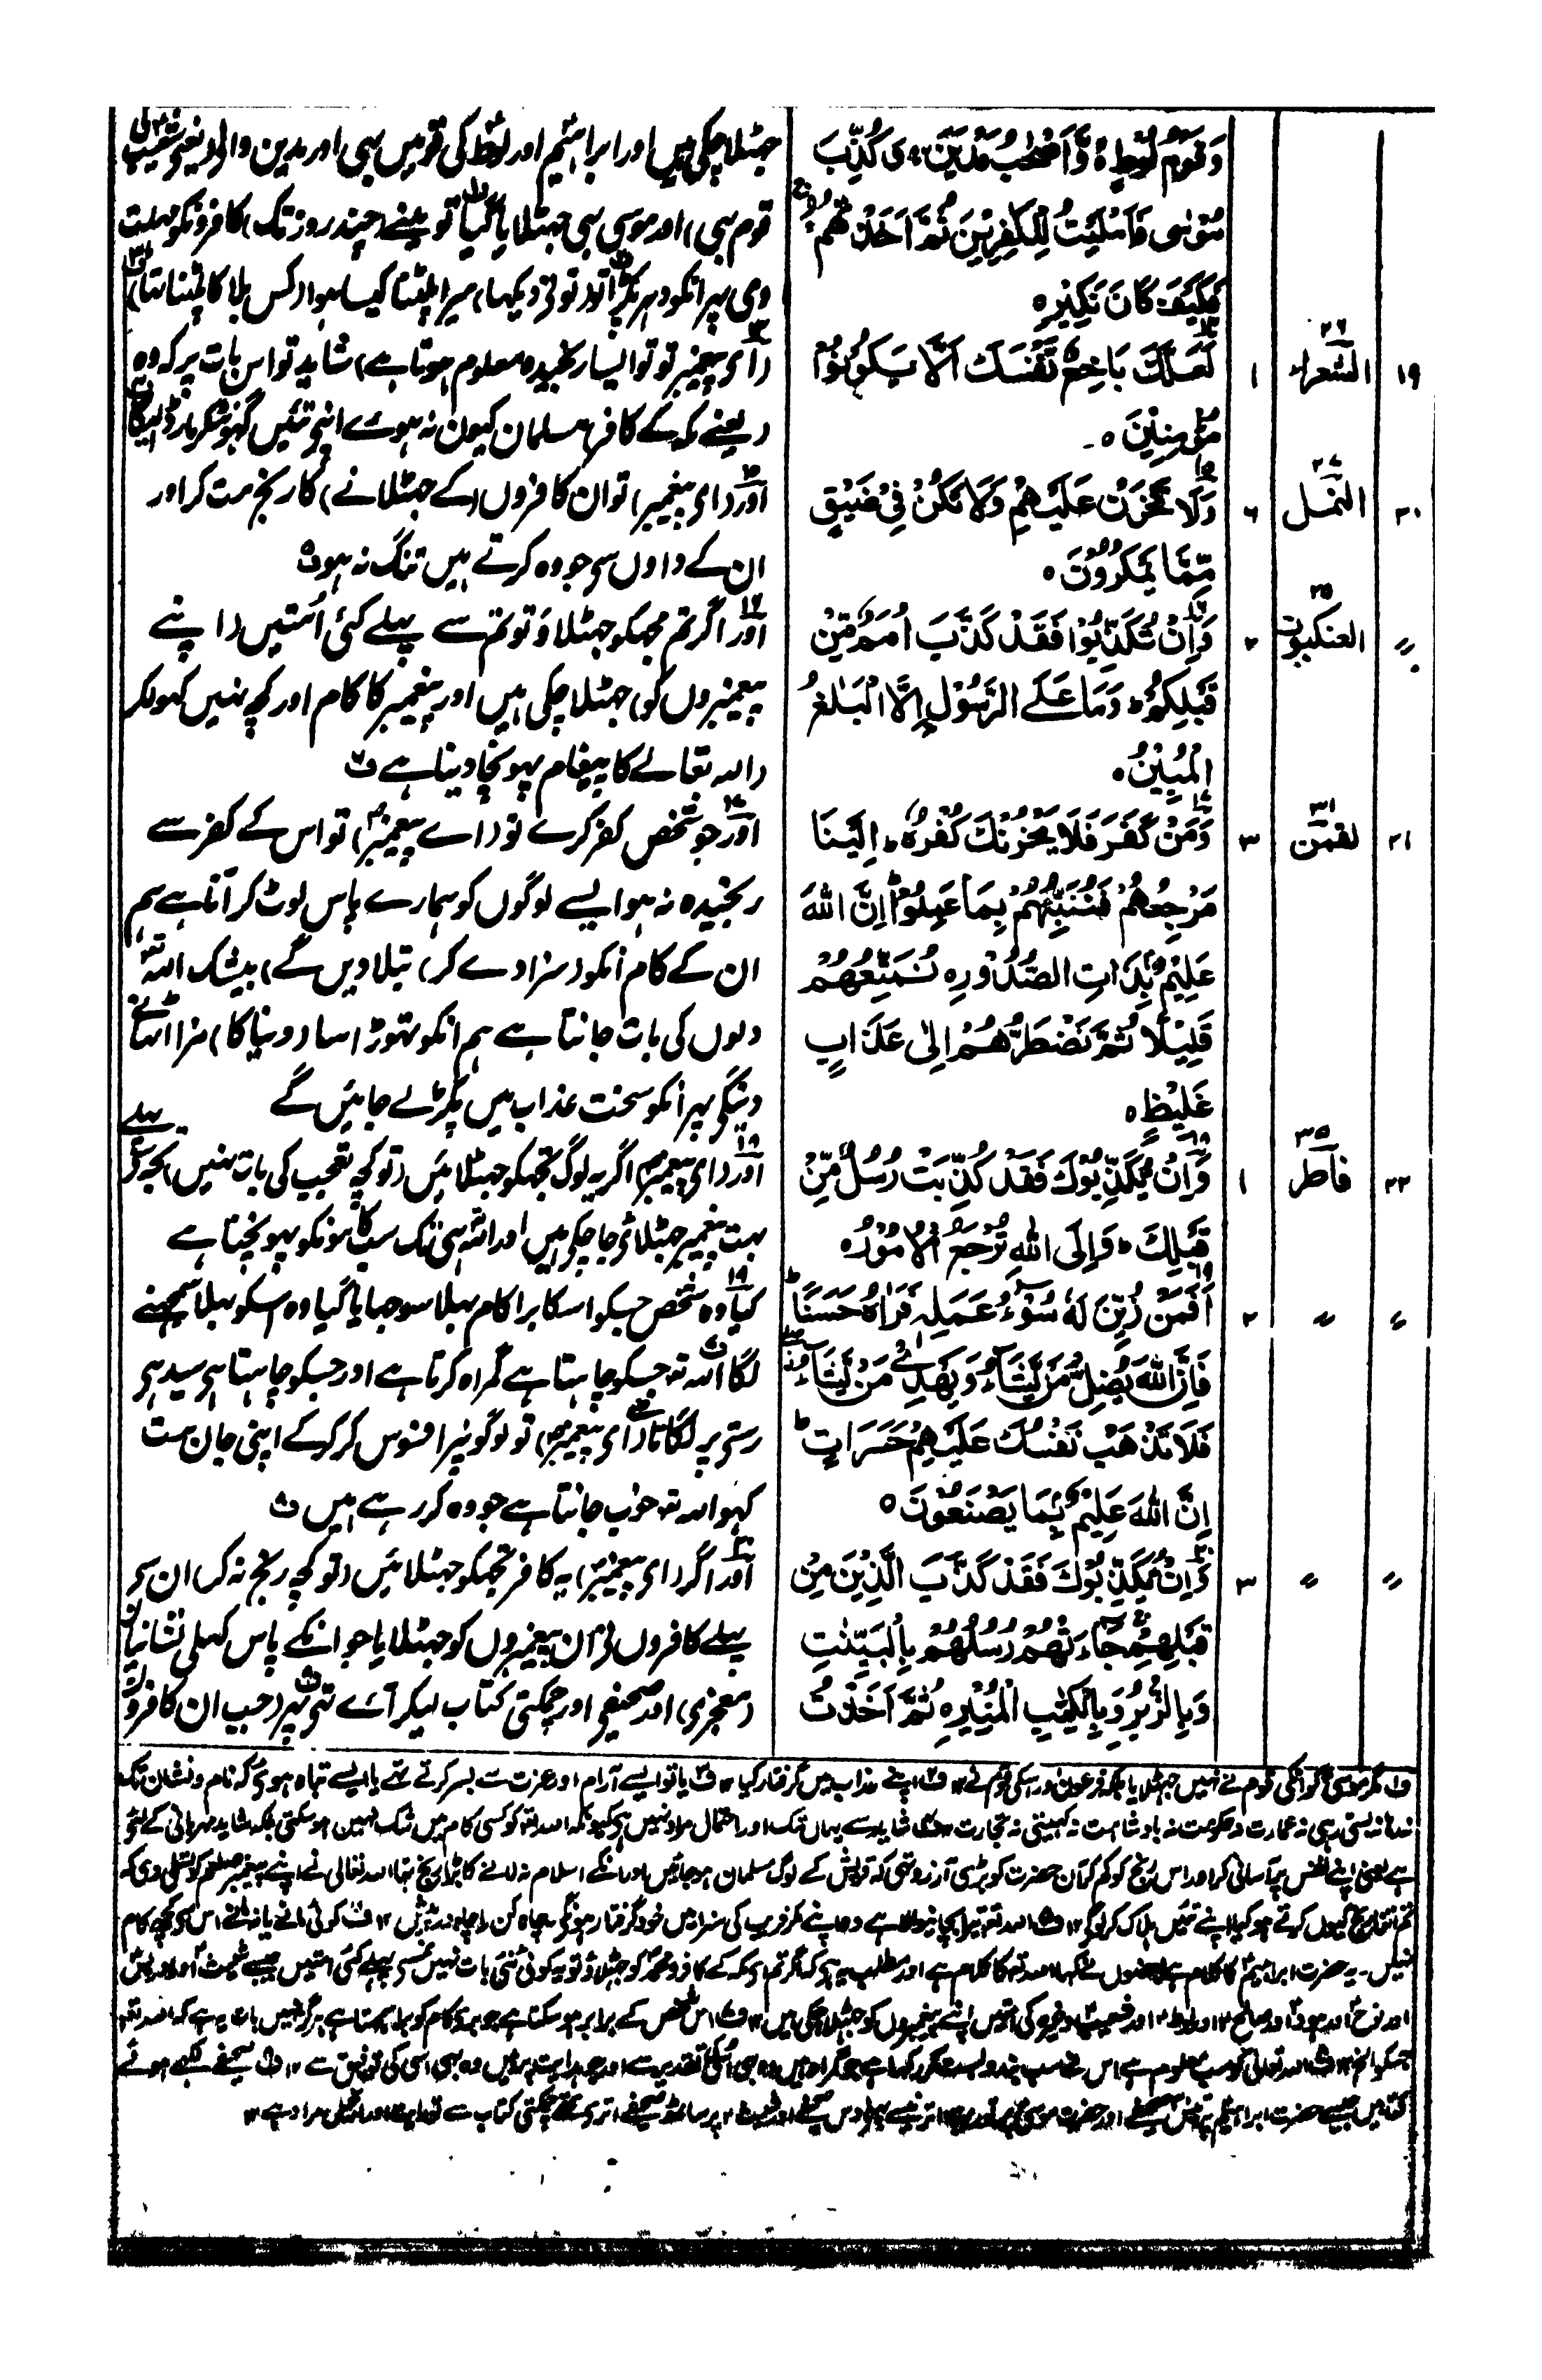 وَقَوْمُ لُوْطٍ ۙ وَّاَصْحٰبُ مَدْيَنَ ۚ وَكُذِّبَ
مُوْسٰى فَاَمْلَيْتُ لِلْكٰفِرِيْنَ ثُمَّ اَخَذْتُهُمْ ۚ
فَكَيْفَ كَانَ نَكِيْرِ ہ
جھٹلا چکی ہیں اور ابراہیم اور لوط کی قومیں بہی اور مدین والو (یعنی شعیب کی
قوم بہی) اور موسی بہی جھٹلایا گیا تو مینے (چند روز تک) کافرونکو مہلت
دی پہر انکو دہر پکڑا تو (تونی دیکہا) میرا پلٹنا کیسا ہوا (کس بلا کا پلٹنا تہا)
۱۹ الشعراء ۲۶ ۱
لَعَلَّكَ بَاخِعٌ نَّفْسَكَ اَلَّا يَكُوْنُوْا
مُؤْمِنِيْنَ ہ
(ای پیغمبر تو تو ایسا رنجیدہ معلوم ہوتا ہے) شاید تو اس بات پر کہ وہ
(یعنے مکہ کے کافر) مسلمان کیون نہ ہوے اپنے تئیں گہونٹ کر مار ڈالیگا
۲۰ النمل ۲۷ ۶
وَلَا تَحْزَنْ عَلَيْهِمْ وَلَا تَكُنْ فِيْ ضَيْقٍ
مِّمَّا يَمْكُرُوْنَ ہ
اور (ای پیغمبر) تو ان کافروں (کے جھٹلانے) کا رنج مت کر اور
ان کے داوں سے جو وہ کرتے ہیں تنگ نہ ہو ف۵
〃 العنكبوت ۲۵ ۲
وَاِنْ تُكَذِّبُوْا فَقَدْ كَذَّبَ اُمَمٌ مِّنْ
قَبْلِكُمْ ؕ وَمَا عَلَى الرَّسُوْلِ اِلَّا الْبَلٰغُ
الْمُبِيْنُ ہ
اور اگر تم مجہکو جھٹلاؤ تو تم سے پہلے کئی اُمتیں (اپنے
پیغمبروں کو) جھٹلا چکی ہیں اور پیغمبر کا کام اور کچہ نہیں کہولکر
(اللہ تعالے کا پیغام) پہونچا دینا ہے ف۶
۲۱ لقمٰن ۳۱ ۳
وَمَنْ كَفَرَ فَلَا يَحْزُنْكَ كُفْرُهٗ ؕ اِلَيْنَا
مَرْجِعُهُمْ فَنُنَبِّئُهُمْ بِمَا عَمِلُوْا ؕ اِنَّ اللّٰهَ
عَلِيْمٌۢ بِذَاتِ الصُّدُوْرِ ہ نُمَتِّعُهُمْ
قَلِيْلًا ثُمَّ نَضْطَرُّهُمْ اِلٰى عَذَابٍ
غَلِيْظٍ ہ
اور جو شخص کفر کرے تو (اے پیغمبر) تو اس کے کفر سے
رنجیدہ نہ ہو ایسے لوگوں کو ہمارے پاس لوٹ کر آنا ہے ہم
ان کے کام انکو (سزا دے کر) بتلا دیں گے) بیشک اللہ تعہ
دلوں کی بات جانتا ہے ہم انکو تہوڑا سا (دنیا کا) مزا اٹہانے
دینگے پہر انکو سخت عذاب میں پکڑے جائیں گے
۲۲ فاطر ۳۵ ۱
وَاِنْ يُّكَذِّبُوْكَ فَقَدْ كُذِّبَتْ رُسُلٌ مِّنْ
قَبْلِكَ ؕ وَاِلَى اللّٰهِ تُرْجَعُ الْاُمُوْرُ ہ
اور (ای پیغمبر) اگر یہ لوگ تجہکو جھٹلائیں (تو کچہ تعجب کی بات نہیں) تجہ سے پہلے
بہت پیغمبر جھٹلائے جا چکے ہیں اور اللہ ہی تک سب کامونکو پہونچنا ہے
〃 〃 ۲
اَفَمَنْ زُيِّنَ لَهٗ سُوْٓءُ عَمَلِهٖ فَرَاٰهُ حَسَنًا ؕ
فَاِنَّ اللّٰهَ يُضِلُّ مَنْ يَّشَآءُ وَيَهْدِيْ مَنْ يَّشَآءُ ۖ
فَلَا تَذْهَبْ نَفْسُكَ عَلَيْهِمْ حَسَرَاتٍ ؕ
اِنَّ اللّٰهَ عَلِيْمٌۢ بِمَا يَصْنَعُوْنَ ہ
کیا وہ شخص جسکو اسکا برا کام بہلا سوجہایا گیا وہ اسکو بہلا سمجہنے
لگا ف۷ اللہ تعہ جسکو چاہتا ہے گمراہ کرتا ہے اور جسکو چاہتا ہے سیدہی
رستے پر لگاتا (ای پیغمبر) تو لوگونپر افسوس کر کر کے اپنی جان مت
کہو اللہ تعہ خوب جانتا ہے جو وہ کر رہے ہیں ف۸
〃 〃 ۳
وَاِنْ يُّكَذِّبُوْكَ فَقَدْ كَذَّبَ الَّذِيْنَ مِنْ
قَبْلِهِمْ ۚ جَآءَتْهُمْ رُسُلُهُمْ بِالْبَيِّنٰتِ
وَبِالزُّبُرِ وَبِالْكِتٰبِ الْمُنِيْرِ ہ ثُمَّ اَخَذْتُ
اور اگر (ای پیغمبر) یہ کافر تجہکو جھٹلائیں (تو کچہ رنج نہ کر) ان سے
پہلے کافروں نے ان پیغمبروں کو جھٹلایا جو انکے پاس کہلی نشانیاں
(معجزے) اور صحیفے اور چمکتی کتاب لیکر آئے تہے پہر (جب ان کافروں
ف۱ مگر موسیٰ کو انکی قوم نے نہیں جھٹلایا بلکہ فرعون اور اسکی قوم نے ۱۲ ف۲ اپنے عذاب میں گرفتار کیا ۱۲ ف۳ یا تو ایسے آرام اور عزت سے بسر کرتے تہے یا ایسے تباہ ہوے کہ نام و نشان تک
نہ رہا نہ بستی رہی نہ عمارت نہ حکومت نہ بادشاہت نہ کہیتی نہ تجارت ۱۲ ف۴ شاید سے یہاں شک اور احتمال مراد نہیں ہے کیونکہ اللہ تعہ کو کسی کام میں شک نہیں ہو سکتی بلکہ شاید مہربانی کے لئے
ہے یعنی اپنے نفس پر آسانی کر اور اس رنج کو کم کر آن حضرت کو بڑی آرزو تہی کہ قریش کے لوگ مسلمان ہو جائیں اور انکے اسلام نہ لانے کا بڑا رنج تہا اللہ تعالی نے اپنے پیغمبر صلعم کو تسلی دی کہ
تم اتنا رنج کیوں کرتے ہو کیا اپنے تئیں ہلاک کر لوگے ۱۲ ف۵ اللہ تعہ تیرا بچانیوالا ہے وہ اپنے مکر فریب کی سزا میں خود گرفتار ہونگے چاہ کن را چاہ در پیش ۱۲ ف۶ کوئی مانے یا نہ مانے اس سے کچہ کام
نہیں۔ یہ حضرت ابراہیم کا کلام ہے اللہ تعہ کا کلام ہے اور مطلب یہ ہے کہ اگر تم اے مکہ کے کافرو محمد کو جھٹلاؤ تو یہ کوئی نئی بات نہیں تمسے پہلے کئی امتیں جیسے شیث اور ادریس
اور نوح اور ہود اور صالح اور لوط اور شعیب وغیرہ کی امتیں اپنے پیغمبروں کو جھٹلا چکی ہیں ۱۲ ف۷ اس شخص کے برابر ہو سکتا ہے جو برے کام کو برا سمجہتا ہے ہرگز نہیں بات یہ ہے کہ اللہ تعہ
جسکو الخ ۱۲ ف۸ اللہ تعالی کو سب معلوم ہے اس نے سب بندوبست کر رکہا ہے جو گمراہ ہیں وہ بہی اسکی تقدیر سے اور جو ہدایت پر ہیں وہ بہی اسی کی توفیق سے ۱۲ ف۹ صحیفے لکہے ہوئے
کتابیں جیسے حضرت ابراہیم پر صحیفے اور حضرت موسیٰ پر دس صحیفے اور شیث پر ساٹھ صحیفے اترے تہے چمکتی کتاب سے توراۃ اور انجیل مراد ہے ۱۲